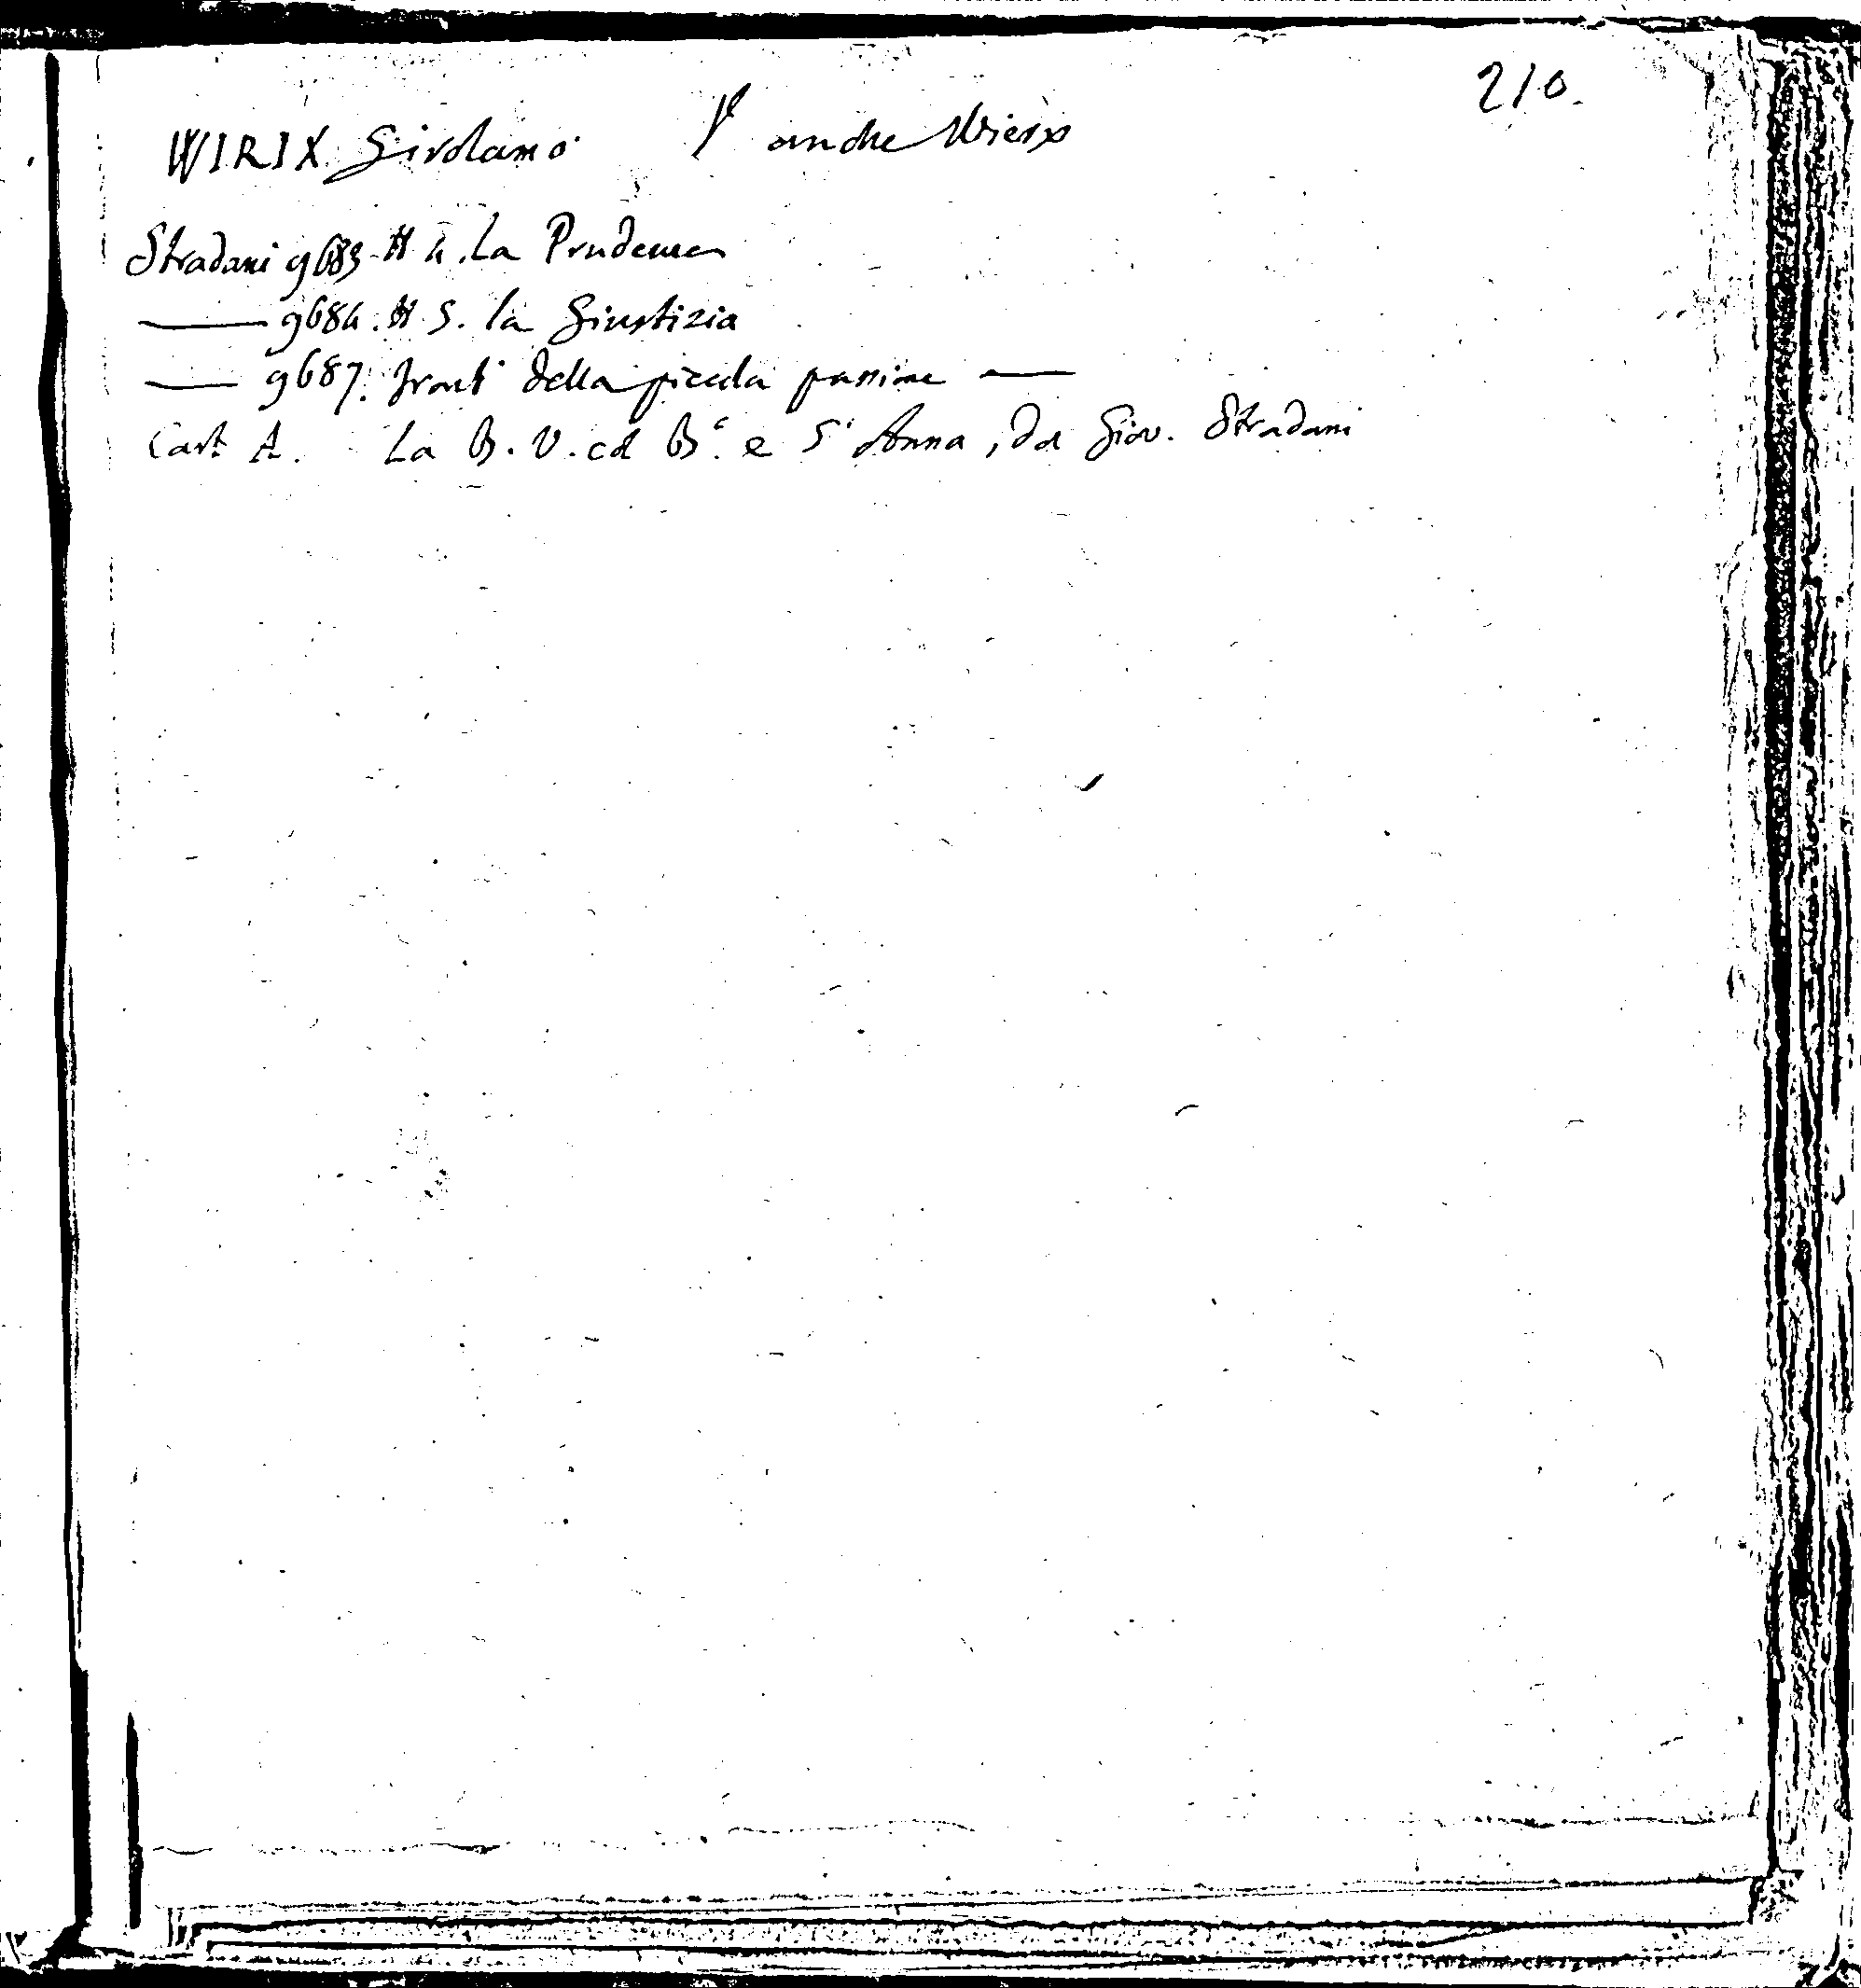 210.
WIRIX Girolamo. V anche Wierx
Stradani 9683 # 4. La Prudenza
—— 9684. # 5. la Giustizia
—— 9687. front della piccola passione ——
Cart. A. La B. V. col B.º e S.ᵗ Anna, da Giov. Stradani